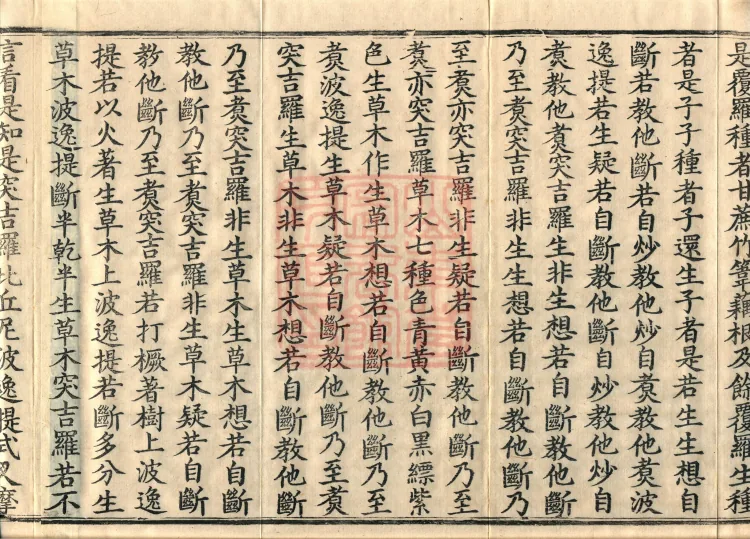 是覆羅種者甘蔗竹葦藕根及餘覆羅生種
者是子子種者子還生子者是若生生想自
斷若教他斷若自炒教他炒自煑教他煑波
逸提若生疑若自斷教他斷自炒教他炒自
煑教他煑突吉羅生非生想若自斷教他斷
乃至煑突吉羅非生生想若自斷教他斷乃
至煑亦突吉羅非生疑若自斷教他斷乃至
煑亦突吉羅草木七種色青黃赤白黑縹紫
色生草木作生草木想若自斷教他斷乃至
煑波逸提生草木疑若自斷教他斷乃至煑
突吉羅生草木非生草木想若自斷教他斷
乃至煑突吉羅非生草木生草木想若自斷
教他斷乃至煑突吉羅非生草木疑若自斷
教他斷乃至煑突吉羅若打橛著樹上波逸
提若以火著生草木上波逸提若斷多分生
草木波逸提斷半乾半生草木突吉羅若不
言看是知是突吉羅比丘尼波逸提式叉摩